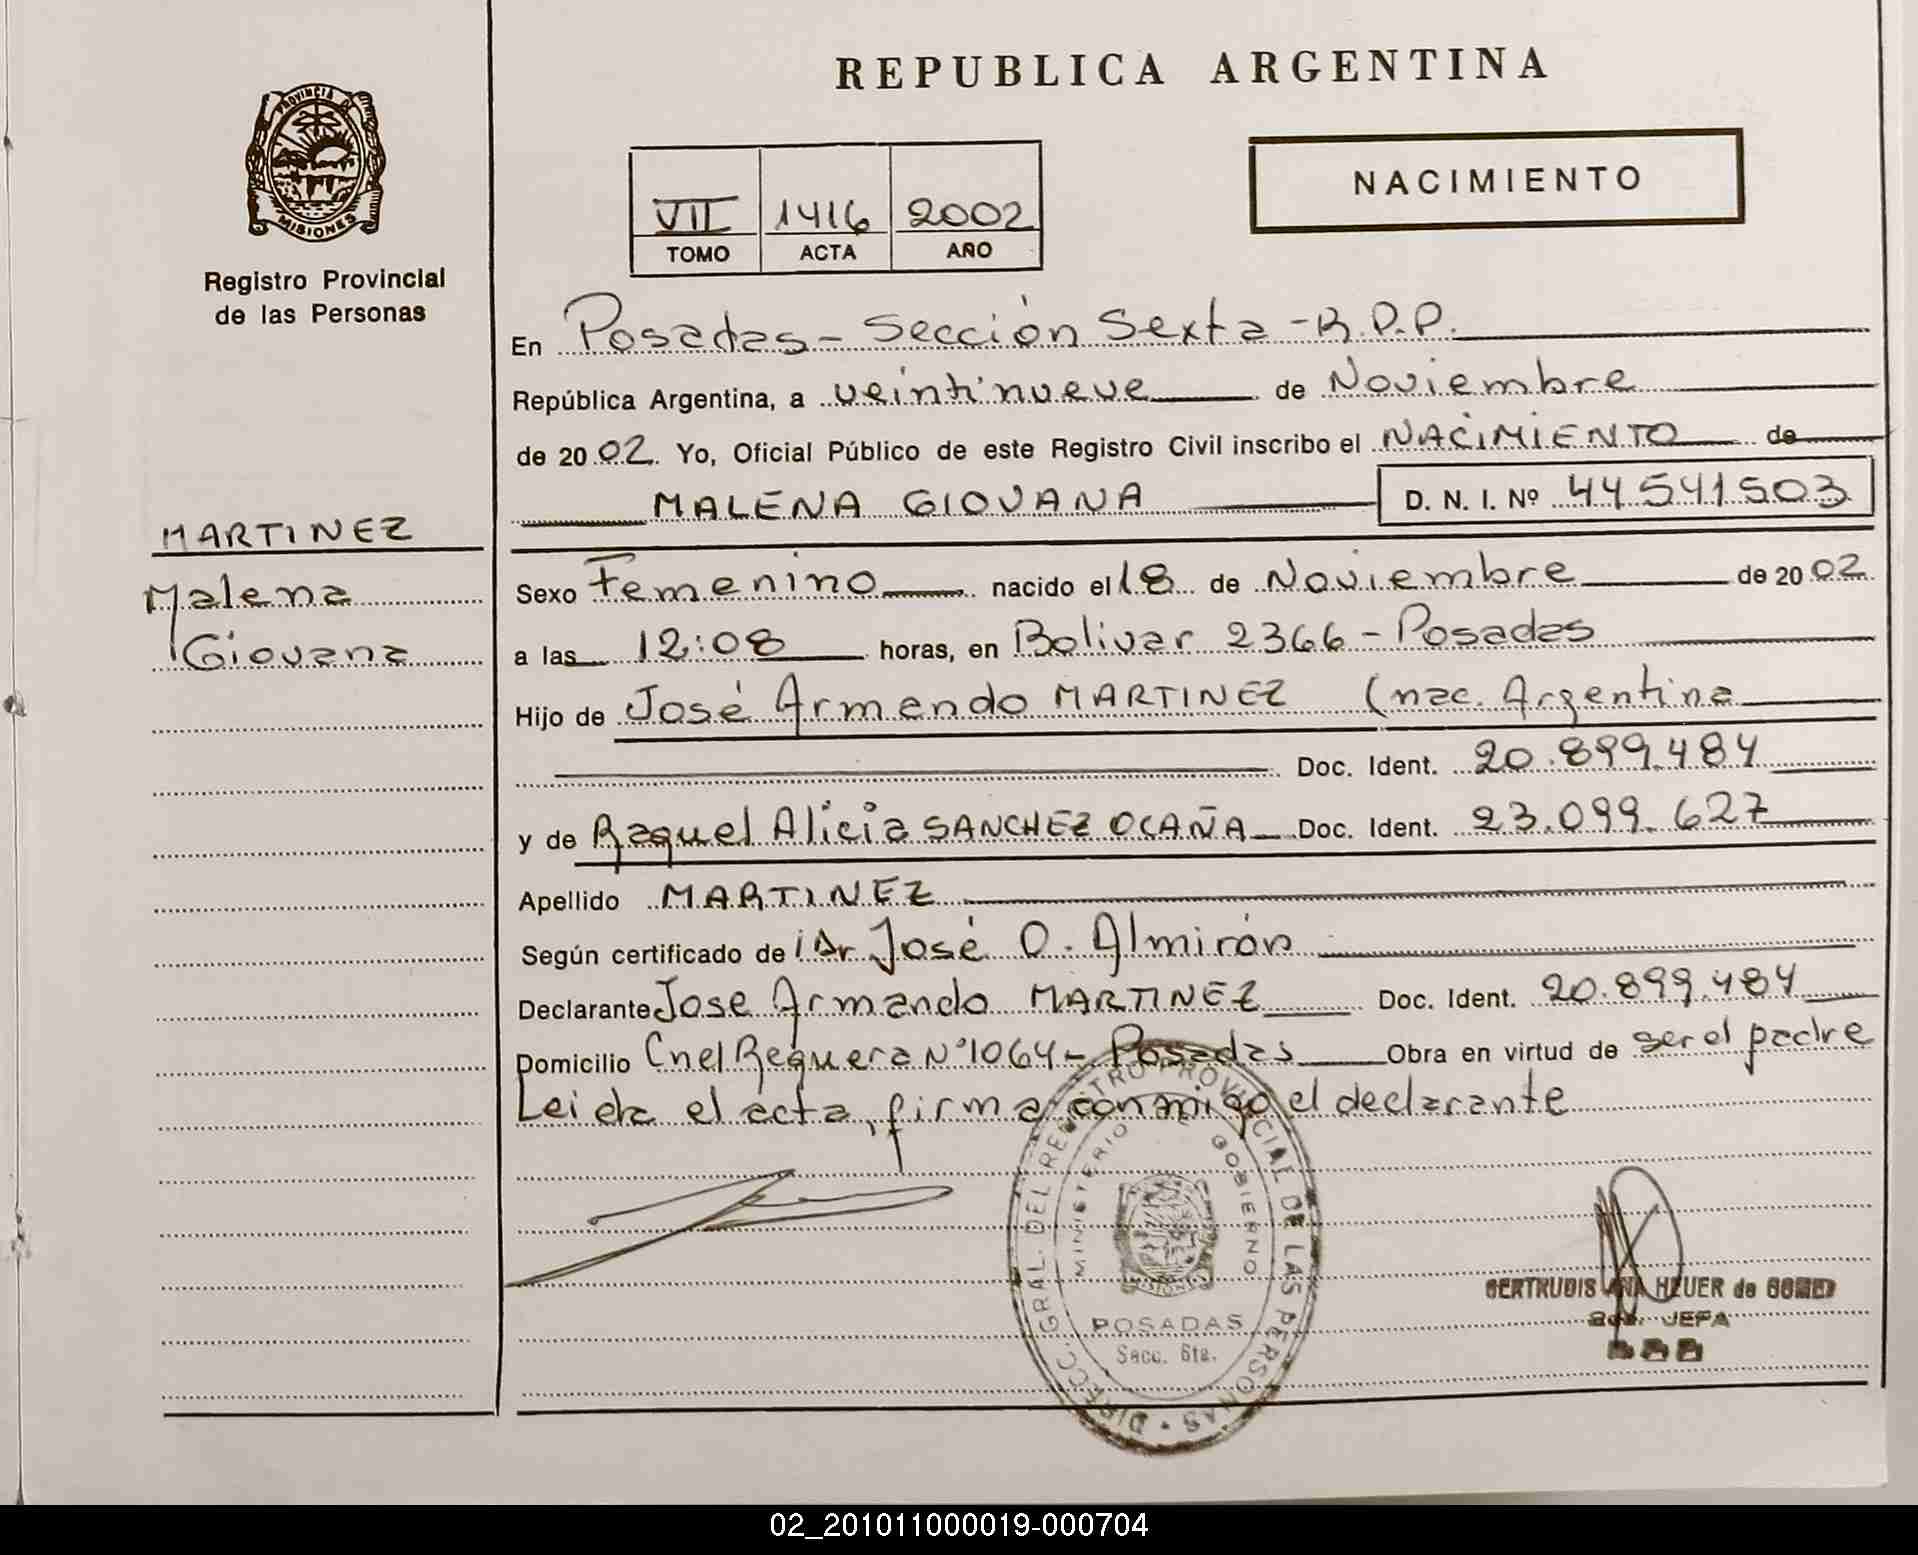 REPUBLICA ARGENTINA
PROVINCIA DE
MISIONES
Registro Provincial
de las Personas
NACIMIENTO
VII 1416 2002
TOMO ACTA AÑO
En Posadas - Sección Sexta - R.P.P.
República Argentina, a veintinueve de Noviembre
de 20 02 Yo, Oficial Público de este Registro Civil inscribo el NACIMIENTO de
MALENA GIOVANA D. N. I. Nº 44541503
MARTINEZ
Malena
Giovana
Sexo Femenino nacido el 18 de Noviembre de 20 02
a las 12:08 horas, en Bolivar 2366 - Posadas
Hijo de José Armando MARTINEZ (nac. Argentina
Doc. Ident. 20.899.484
y de Raquel Alicia SANCHEZ OCAÑA Doc. Ident. 23.099.627
Apellido MARTINEZ
Según certificado de Dr José O. Almirón
Declarante Jose Armando MARTINEZ Doc. Ident. 20.899.484
Domicilio Cnel Reguera Nº 1064 - Posadas Obra en virtud de ser el padre
Leida el acta, firma conmigo el declarante
DIRECC. GRAL. DEL REGISTRO PROVINCIAL DE LAS PERSONAS
MINISTERIO DE GOBIERNO
MISIONES
POSADAS
Secc. 6ta.
GERTRUDIS ANA HEUER de
JEFA
02_201011000019-000704